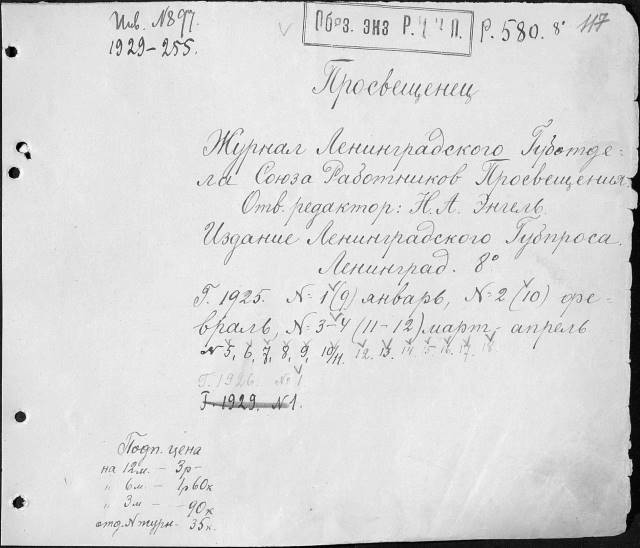 Инв. №897.
1929-255.
Обяз. экз Р.Ц.Ч П. Р. 580. 8° 117
Просвещенец
Журнал Ленинградского Губотде-
ла Союза Работников Просвещения.
Отв. редактор: Н. А. Энгель.
Издание Ленинградского Губпроса.
Ленинград. 8°
Г. 1925. №1 (9) январь, №2 (10) фе-
враль, №3-4 (11-12) март, апрель
№5, 6, 7, 8, 9, 10/11. 12. 13. 14. 15. 16. 17. 18.
Г. 1926. №1.
Г. 1929. №1.
Подп. цена
на 12м. - 3р-
" 6м. - 1р60к
" 3м - -90к
отд. № журн. 35к.